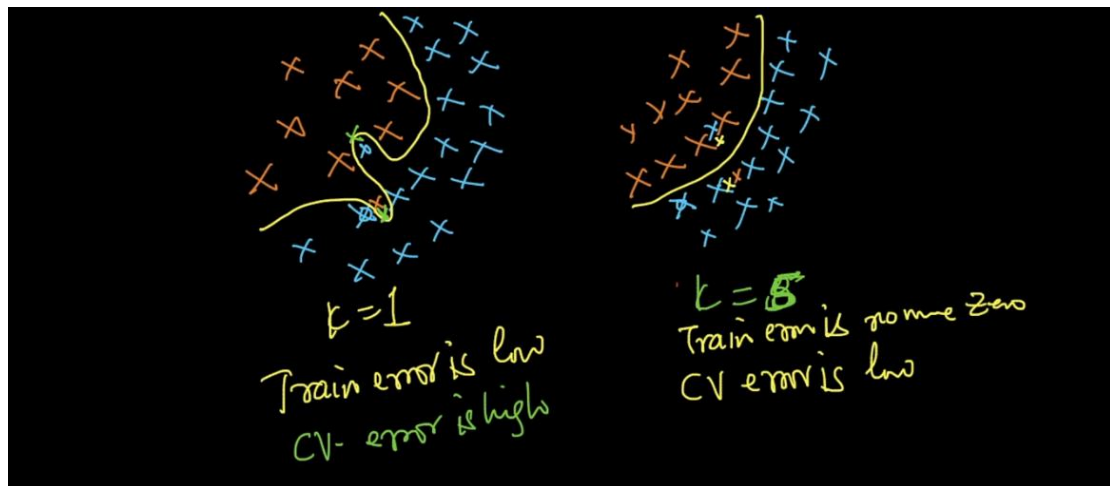 k=1
Train error is low
CV- error is high
k = 5
Train error is no more zero
CV error is low